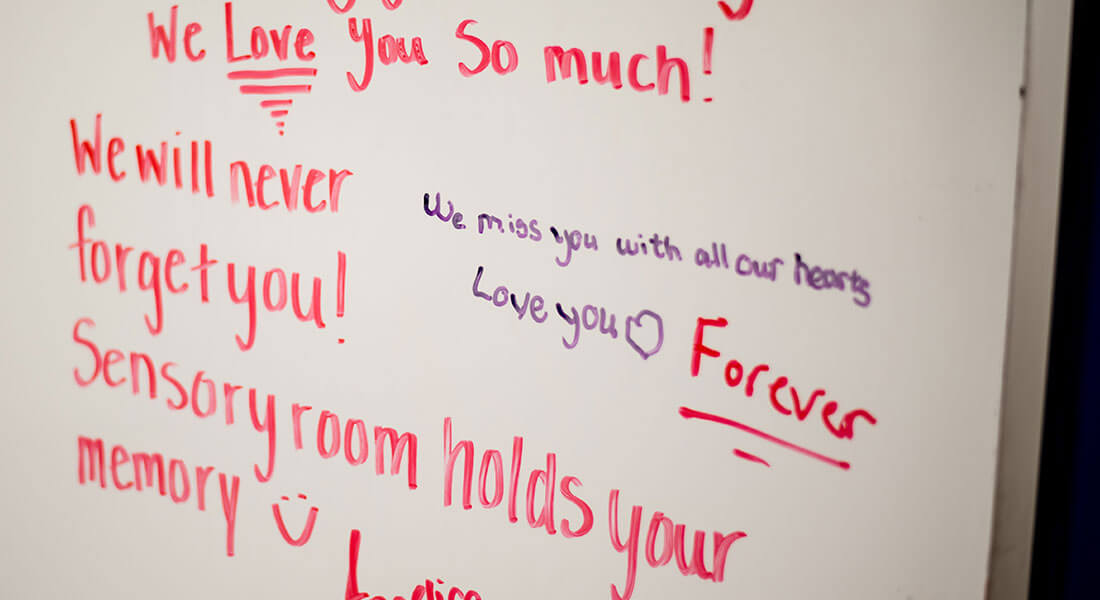 We Love you So much!
We will never
forget you!
We miss you with all our hearts
Love you
Forever
Sensory room holds your
memory